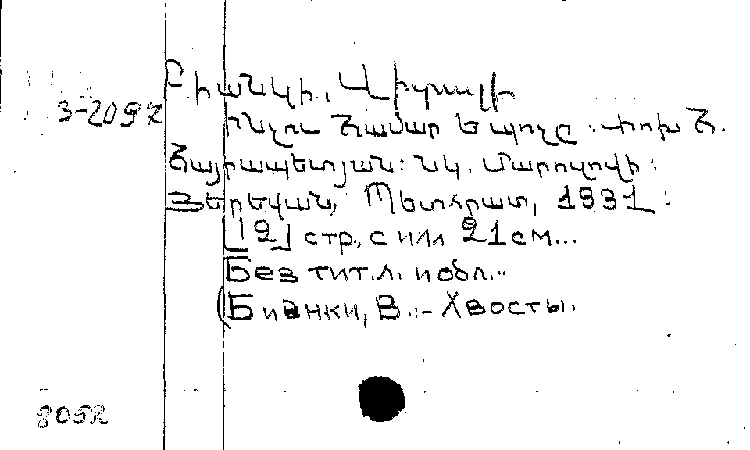 Բիանկի, Վիտալի
3-2092
Ինչու համար է պոչը. Փոխ Հ.
Հայրապետյան: Նկ. Մարուլովի:
Յերեվան, Պետհրատ, 1931:
[12] стр. с илл 21 см...
Без тит. л. и обл..
(Бианки, В.:- Хвосты.
8052